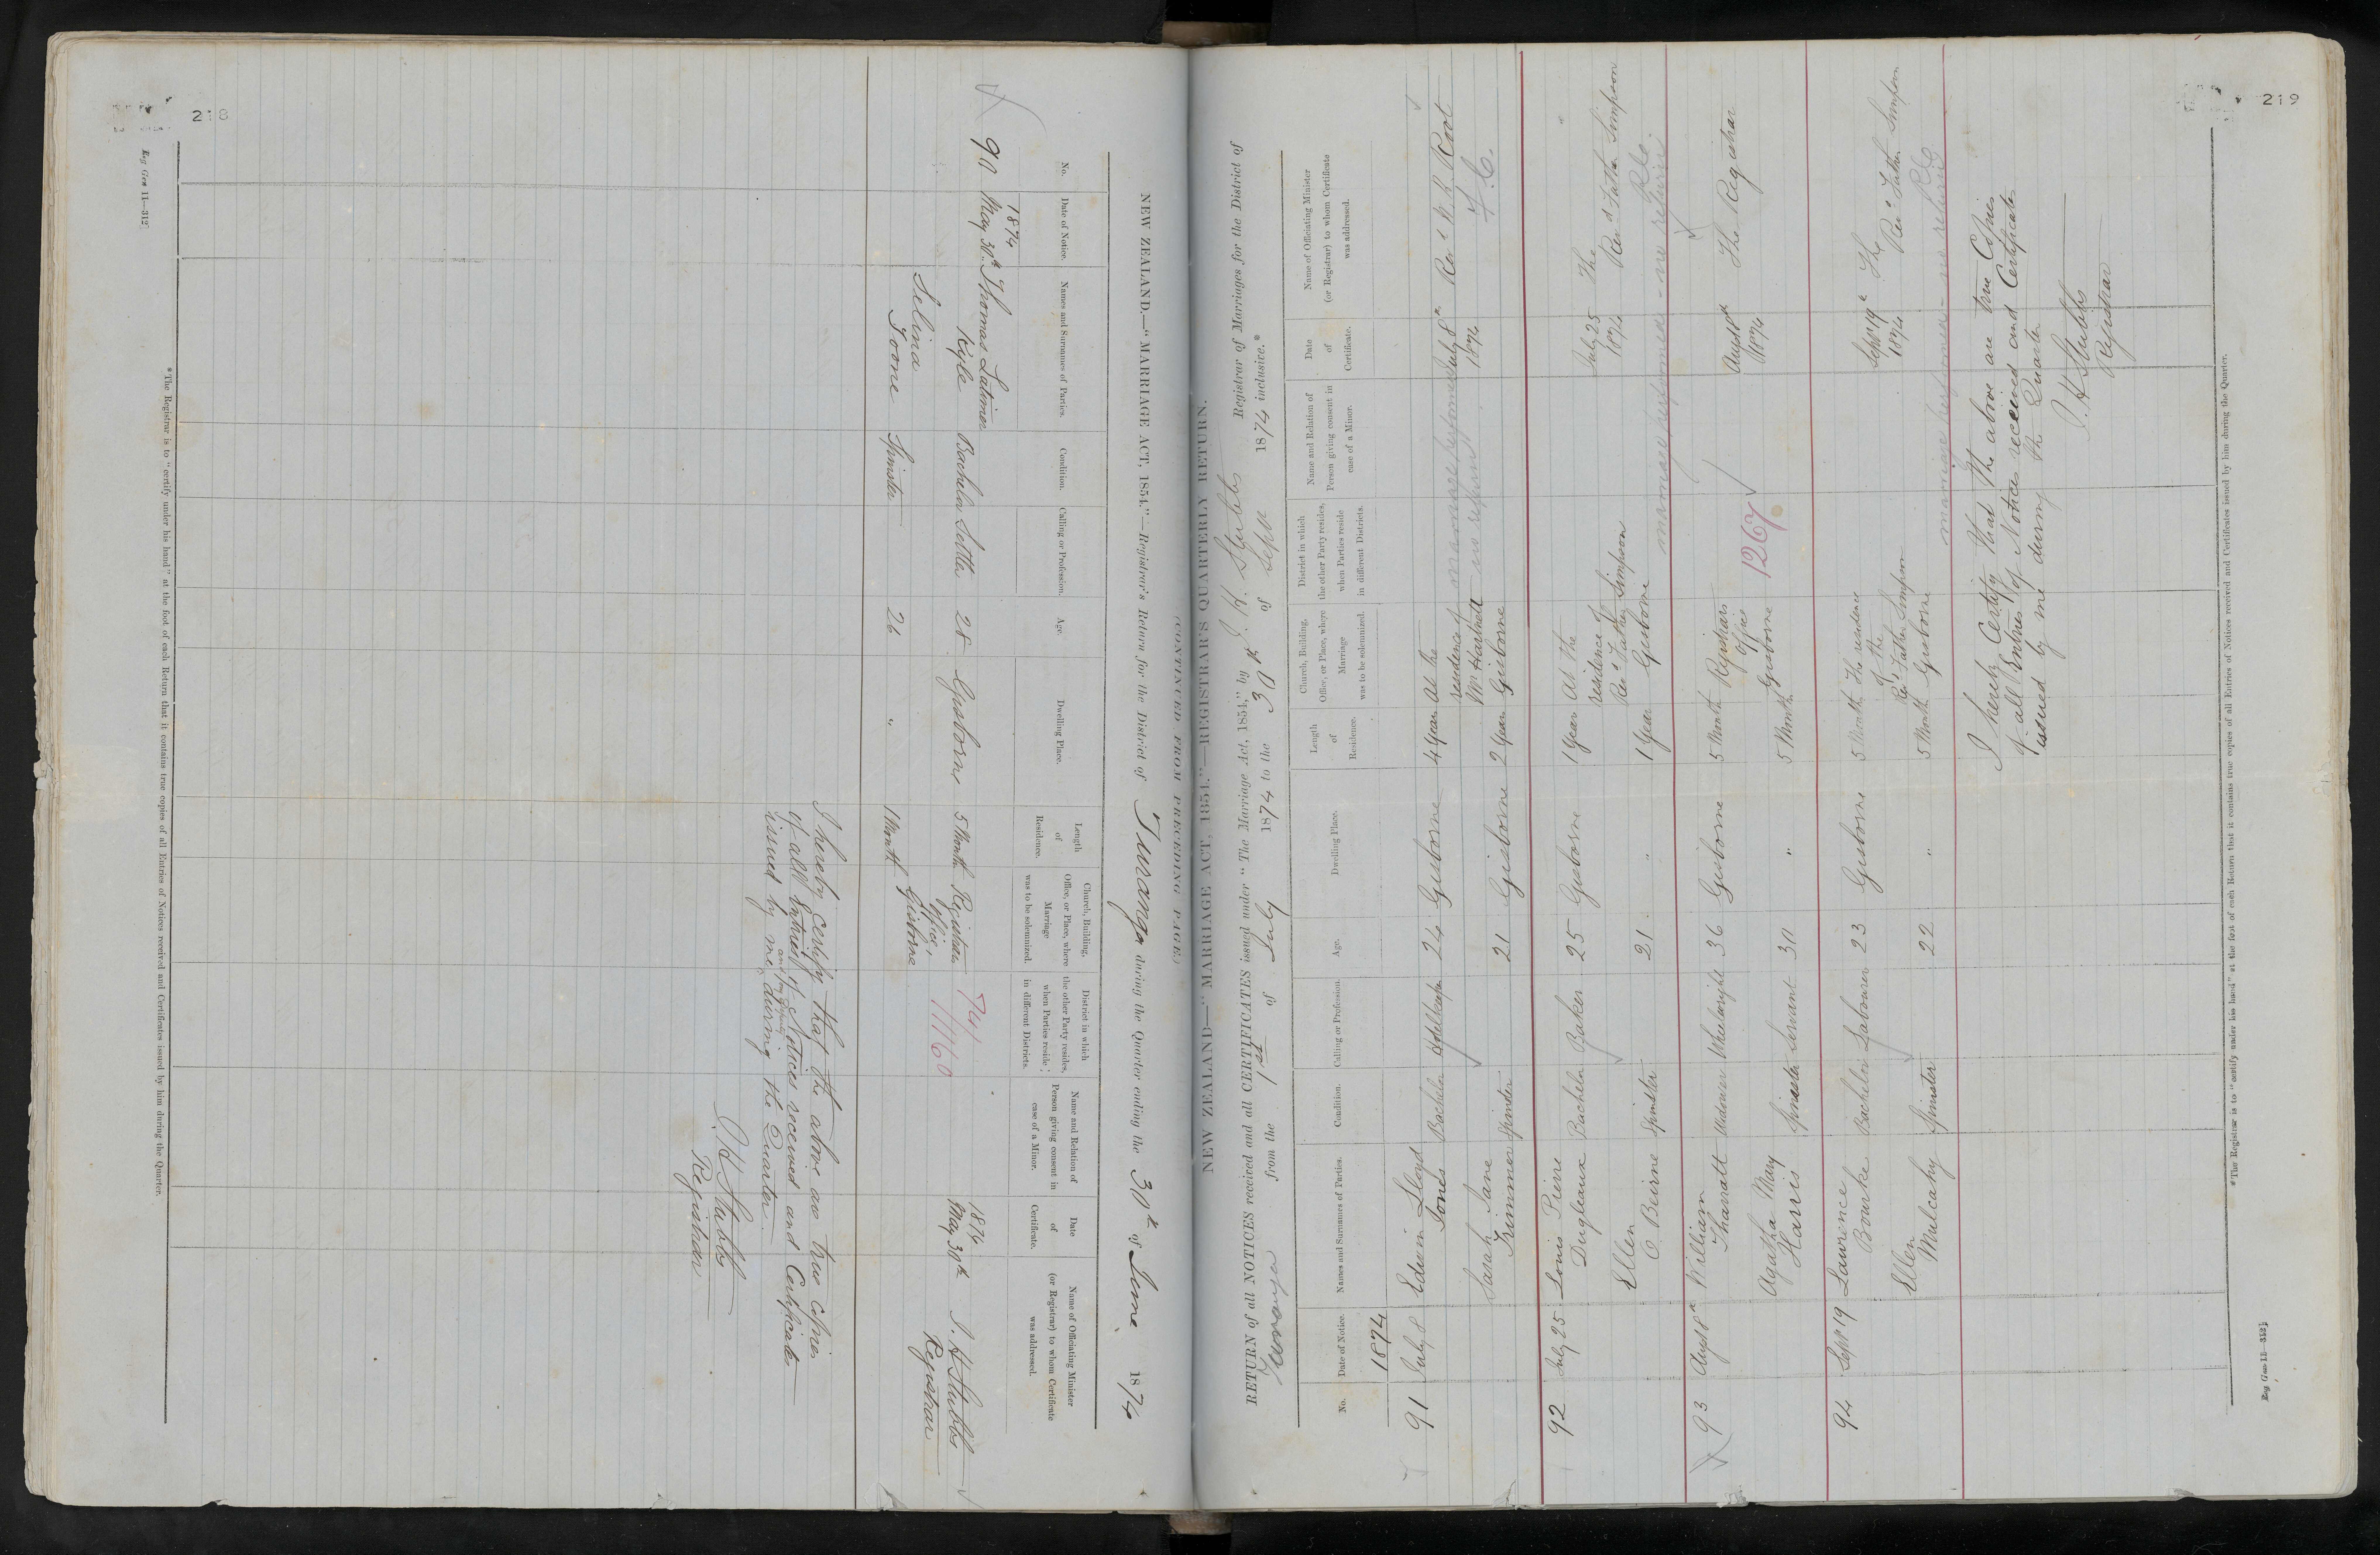 218
Reg Gen 11—312
NEW ZEALAND.—"MARRIAGE ACT, 1854."—Registrar's Return for the District of Turanga during the Quarter ending the 30th of June 1874
No.
Date of Notice.
Names and Surnames of Parties.
Condition.
Calling or Profession.
Age.
Dwelling Place.
Length of Residence.
Church, Building, Office, or Place, where Marriage was to be solemnized.
District in which the other Party resides, when Parties reside in different Districts.
Name and Relation of Person giving consent in case of a Minor.
Date of Certificate.
Name of Officiating Minister (or Registrar) to whom Certificate was addressed.
1874
90 May 30th Thomas Latimer Kyle Bachelor Settler 28 Gisborne 5 Month Registrars Office, Gisborne
1874 May 30th J. H Stubbs Registrar
Selina Goone Spinster 26 " 1 Month
I hereby certify that the above are true copies
of all Entries of Notices received and Certificates
issued by me during the Quarter.
J H Stubbs
Registrar
*The Registrar is to "certify under his hand" at the foot of each Return that it contains true copies of all Entries of Notices received and Certificates issued by him during the Quarter.
219
(CONTINUED FROM PRECEDING PAGE.)
NEW ZEALAND—"MARRIAGE ACT, 1854."—REGISTRAR'S QUARTERLY RETURN.
RETURN of all NOTICES received and all CERTIFICATES issued under "The Marriage Act, 1854," by J. H. Stubbs Registrar of Marriages for the District of
Turanga from the 1st of July 1874 to the 30th of Sept 1874 inclusive.*
No.
Date of Notice.
Names and Surnames of Parties.
Condition.
Calling or Profession.
Age.
Dwelling Place.
Length of Residence.
Church, Building, Office, or Place, where Marriage was to be solemnized.
District in which the other Party resides, when Parties reside in different Districts.
Name and Relation of Person giving consent in case of a Minor.
Date of Certificate.
Name of Officiating Minister (or Registrar) to whom Certificate was addressed.
1874
91 July 8 Edwin Lloyd Jones Bachelor Hotelkeeper 24 Gisborne 4 Year At the residence of Mr Hartnett Gisborne July 8th 1874 Revd W. H. Root F. C.
Sarah Jane Trimmer Spinster 21 Gisborne 2 Year
marriage performed no return
92 July 25 Louis Pierre Dugleaux Bachelor Baker 25 Gisborne 1 Year At the residence of Revd Father Simpson Gisborne July 25 1874 The Revd Father Simpson R.C.
Ellen O Beirne Spinster 21 " 1 Year
marriage performed - no return
93 Augst 8th William Tharratt Widower Wheelwright 36 Gisborne 5 Month Registrars Office Gisborne 1267 Augst 8th 1874 The Registrar
Agatha Mary Harris Spinster Servant 30 " 5 Month
94 Sept 19 Lawrence Bourke Bachelor Labourer 23 Gisborne 5 Month The residence of the Revd Father Simpson Gisborne Sept 19th 1874 The Revd Father Simpson R.C.
Ellen Mulcahy Spinster 22 " 5 Month
marriage performed - no return
I hereby Certify that the above are true Copies
of all Entries of Notices received and Certificates
issued by me during the Quarter
J. H Stubbs
Registrar
*The Registrar is to "certify under his hand" at the foot of each Return that it contains true copies of all Entries of Notices received and Certificates issued by him during the Quarter.